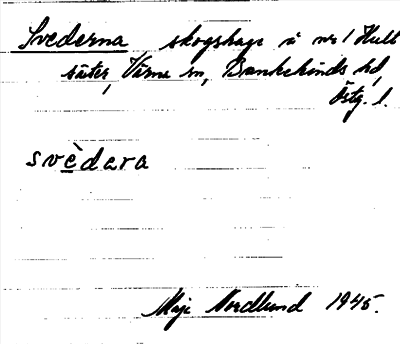 Svederna skogshage å nr 1 Hult
säter, Värna sn, Bankekinds hd,
Östg. l.
svèdara
Maj Nordlund 1945.